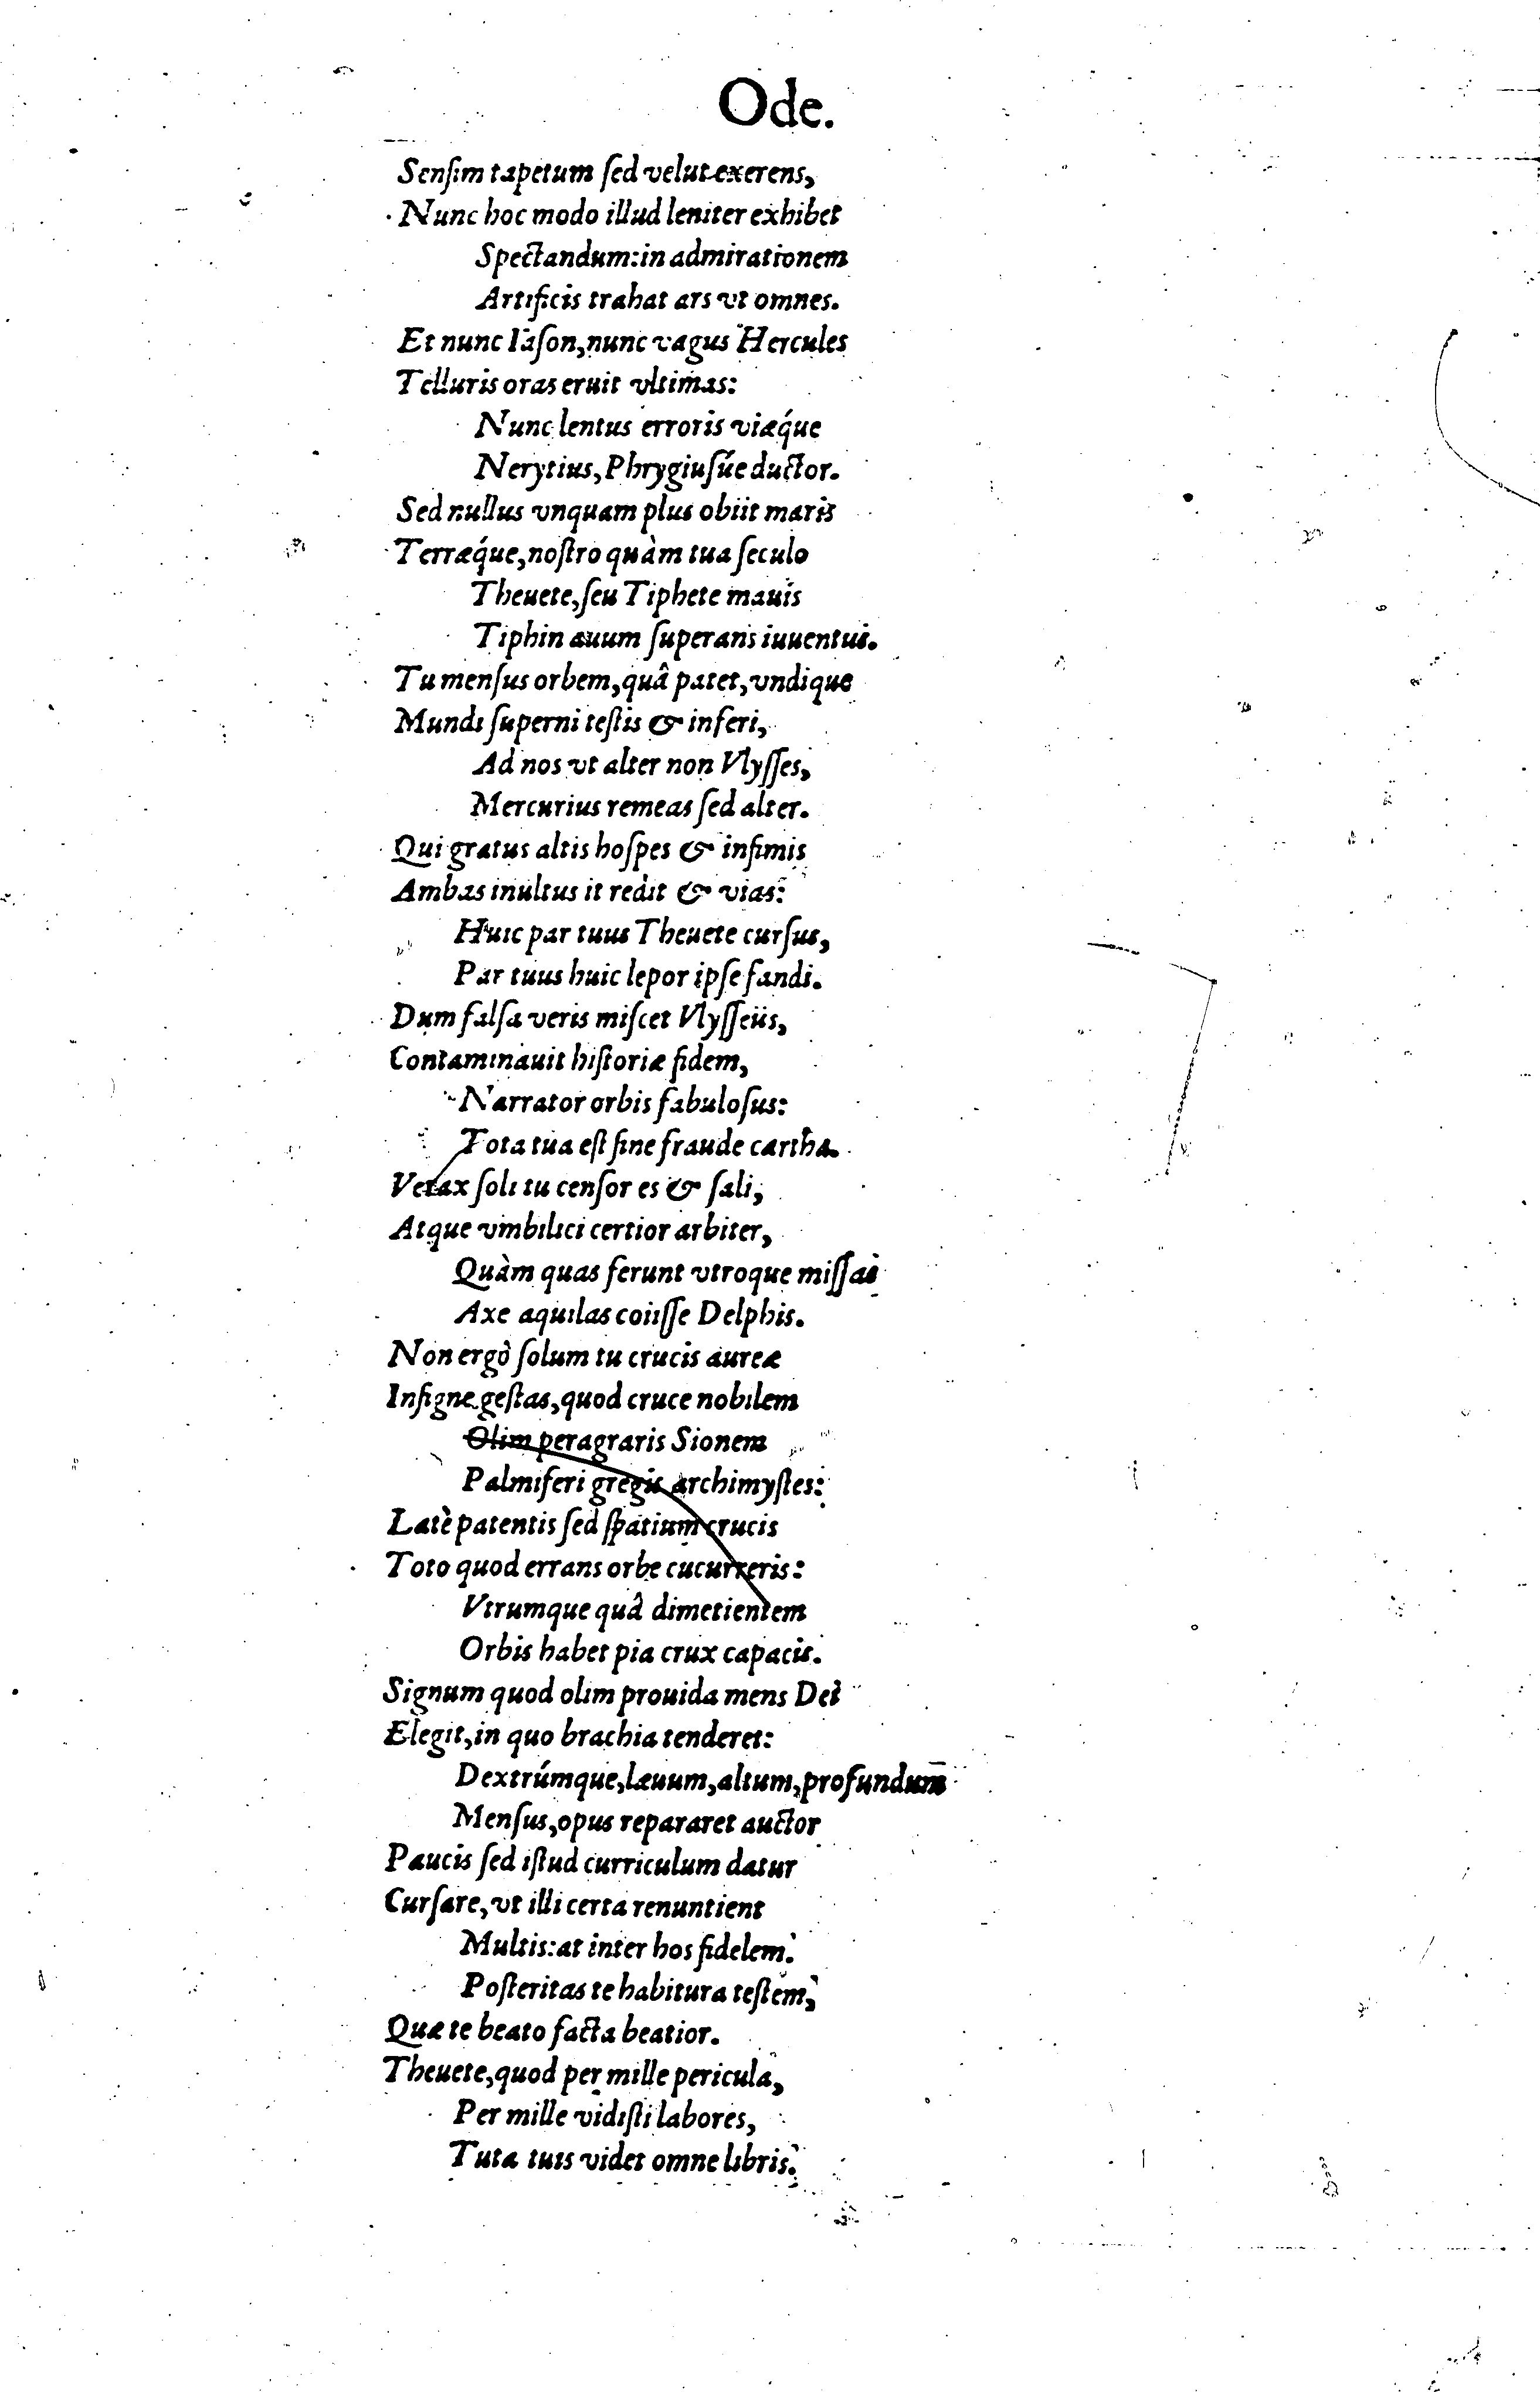 Ode.
Senſim tapetum ſed velut exerens,
Nunc hoc modo illud leniter exhibet
Spectandum: in admirationem
Artificis trahat ars vt omnes.
Et nunc Iäſon, nunc vagus Hercules
Telluris oras eruit vltimas:
Nunc lentus erroris viæq́ue
Nerytius, Phrygiuſúe ductor.
Sed nullus vnquam plus obiit maris
Terræq́ue, noſtro quàm tua ſeculo
Theuete, ſeu Tiphete mauis
Tiphin auum ſuperans iuuentus.
Tu menſus orbem, quâ patet, vndique
Mundi ſuperni teſtis & inferi,
Ad nos vt alter non Vlyſſes,
Mercurius remeas ſed alter.
Qui gratus altis hoſpes & infimis
Ambas inultus it redit & vias:
Huic par tuus Theuete curſus,
Par tuus huic lepor ipſe fandi.
Dum falſa veris miſcet Vlyſſeüs,
Contaminauit hiſtoriæ fidem,
Narrator orbis fabuloſus:
Tota tua eſt ſine fraude cartha.
Verax ſoli tu cenſor es & ſali,
Atque vmbilici certior arbiter,
Quàm quas ferunt vtroque miſſas
Axe aquilas coiiſſe Delphis.
Non ergò ſolum tu crucis aureæ
Inſigne geſtas, quod cruce nobilem
Olim peragraris Sionem
Palmiferi gregis archimyſtes:
Latè patentis ſed ſpatium crucis
Toto quod errans orbe cucurreris:
Vtrumque quâ dimetientem
Orbis habet pia crux capacis.
Signum quod olim prouida mens Dei
Elegit, in quo brachia tenderet:
Dextrúmque, læuum, altum, profundum
Menſus, opus repararet auctor
Paucis ſed iſtud curriculum datur
Curſare, vt illi certa renuntient
Multis: at inter hos fidelem.
Poſteritas te habitura teſtem,
Quæ te beato facta beatior.
Theuete, quod per mille pericula,
Per mille vidiſti labores,
Tuta tuis videt omne libris.